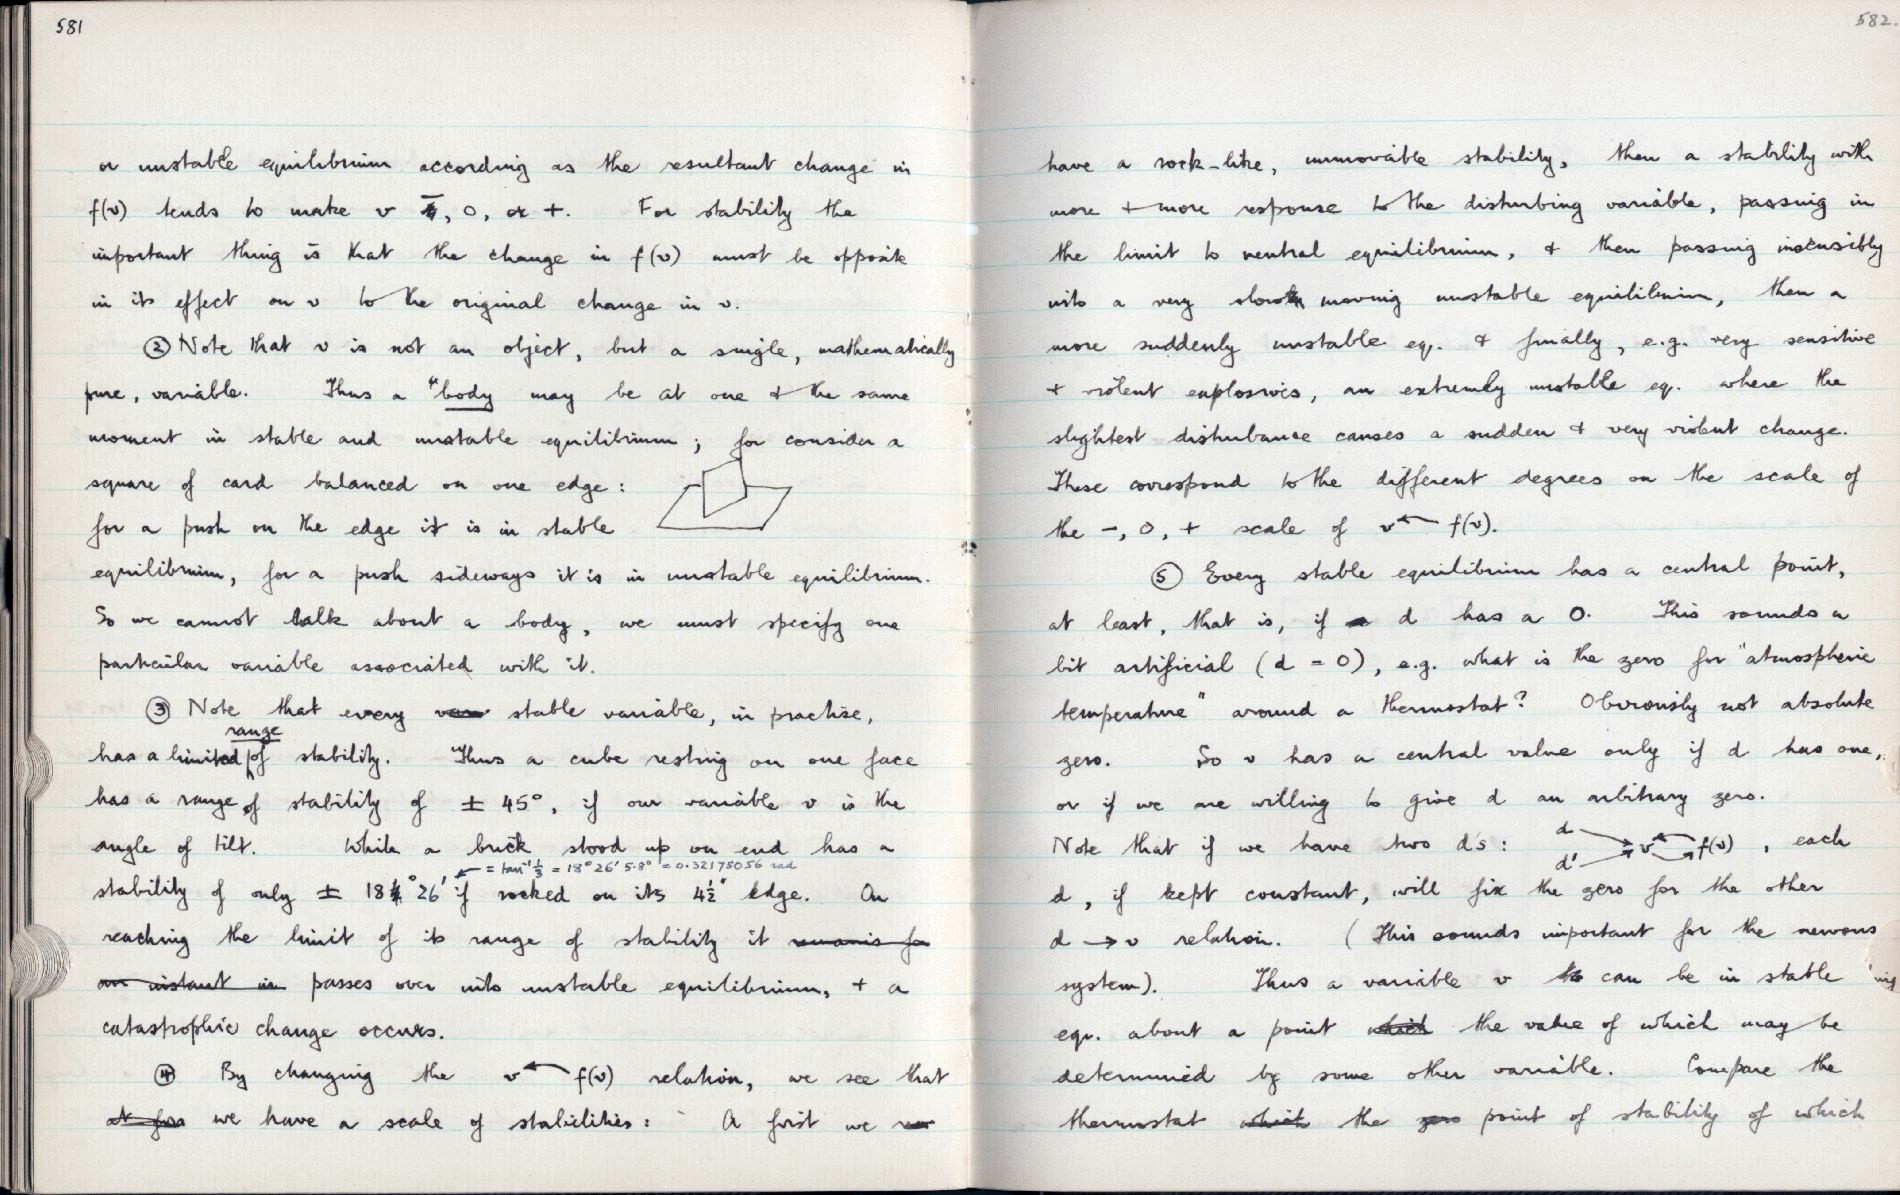 581
or unstable equilibrium according as the resultant change in
f(v) tends to make v –, 0, or +. For stability the
important thing is that the change in f(v) must be opposite
in its effect on v to the original change in v.
② Note that v is not an object, but a single, mathematically
pure, variable. Thus a "body may be at one & the same
moment in stable and unstable equilibrium; for consider a
square of card balanced on one edge:
for a push on the edge it is in stable
equilibrium, for a push sideways it is in unstable equilibrium.
So we cannot talk about a body, we must specify one
particular variable associated with it.
③ Note that every stable variable, in practise,
range
has a limited of stability. Thus a cube resting on one face
has a range of stability of ± 45°, if our variable v is the
angle of tilt. While a brick stood up on end has a
= tan⁻¹ ⅓ = 18° 26' 5.8" = 0.32175056 rad
stability of only ± 18° 26' if rocked on its 4½" edge. On
reaching the limit of its range of stability it remains for
an instant in passes over into unstable equilibrium, + a
catastrophic change occurs.
④ By changing the v ← f(v) relation, we see that
at first we have a scale of stabilities: A first we
582.
have a rock-like, immovable stability, then a stability with
more + more response to the disturbing variable, passing in
the limit to neutral equilibrium, & then passing insensibly
into a very slow moving unstable equilibrium, then a
more suddenly unstable eq. & finally, e.g. very sensitive
+ violent explosives, an extremely unstable eq. where the
slightest disturbance causes a sudden & very violent change.
These correspond to the different degrees on the scale of
the –, 0, + scale of v ← f(v).
⑤ Every stable equilibrium has a central point,
at least, that is, if d has a 0. This sounds a
bit artificial (d = 0), e.g. what is the zero for "atmospheric
temperature" around a thermostat? Obviously not absolute
zero. So v has a central value only if d has one,
or if we are willing to give d an arbitrary zero.
Note that if we have two d's: d d' v f(v), each
d, if kept constant, will fix the zero for the other
d → v relation. (This sounds important for the nervous
system). Thus a variable v can be in stable
eqn. about a point which the value of which may be
determined by some other variable. Compare the
thermostat which the zero point of stability of which